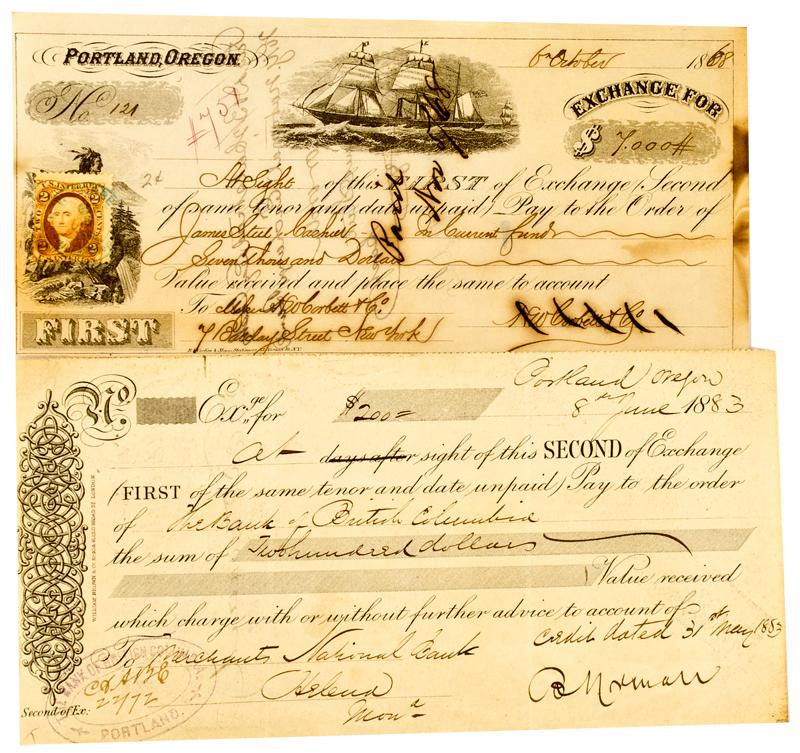 PORTLAND, OREGON
6th October 1868
No 121
$751
EXCHANGE FOR
$ 7.000#
2d
At Sight of this FIRST of Exchange (Second
of same tenor and date unpaid) Pay to the Order of
James Steel Cashier in Current funds
Seven Thousand Dollars
Value received and place the same to account
To Messrs H W Corbett & Co
7 Barclay Street New York
H W Corbett & Co
Paid
Nov
U.S. INTER. REV.
2 2
TWO CENTS
FIRST
Portland Oregon
No Exge for $200= 8th June 1883
At days after sight of this SECOND of Exchange
(FIRST of the same tenor and date unpaid) Pay to the order
of The Bank of British Columbia
the sum of Two hundred dollars
Value received
which charge with or without further advice to account of
Credit dated 31st May 1883
To Merchants National Bank
Helena
Mona
Second of Ex:
BANK OF BRITISH COLUMBIA
PORTLAND.
22/72